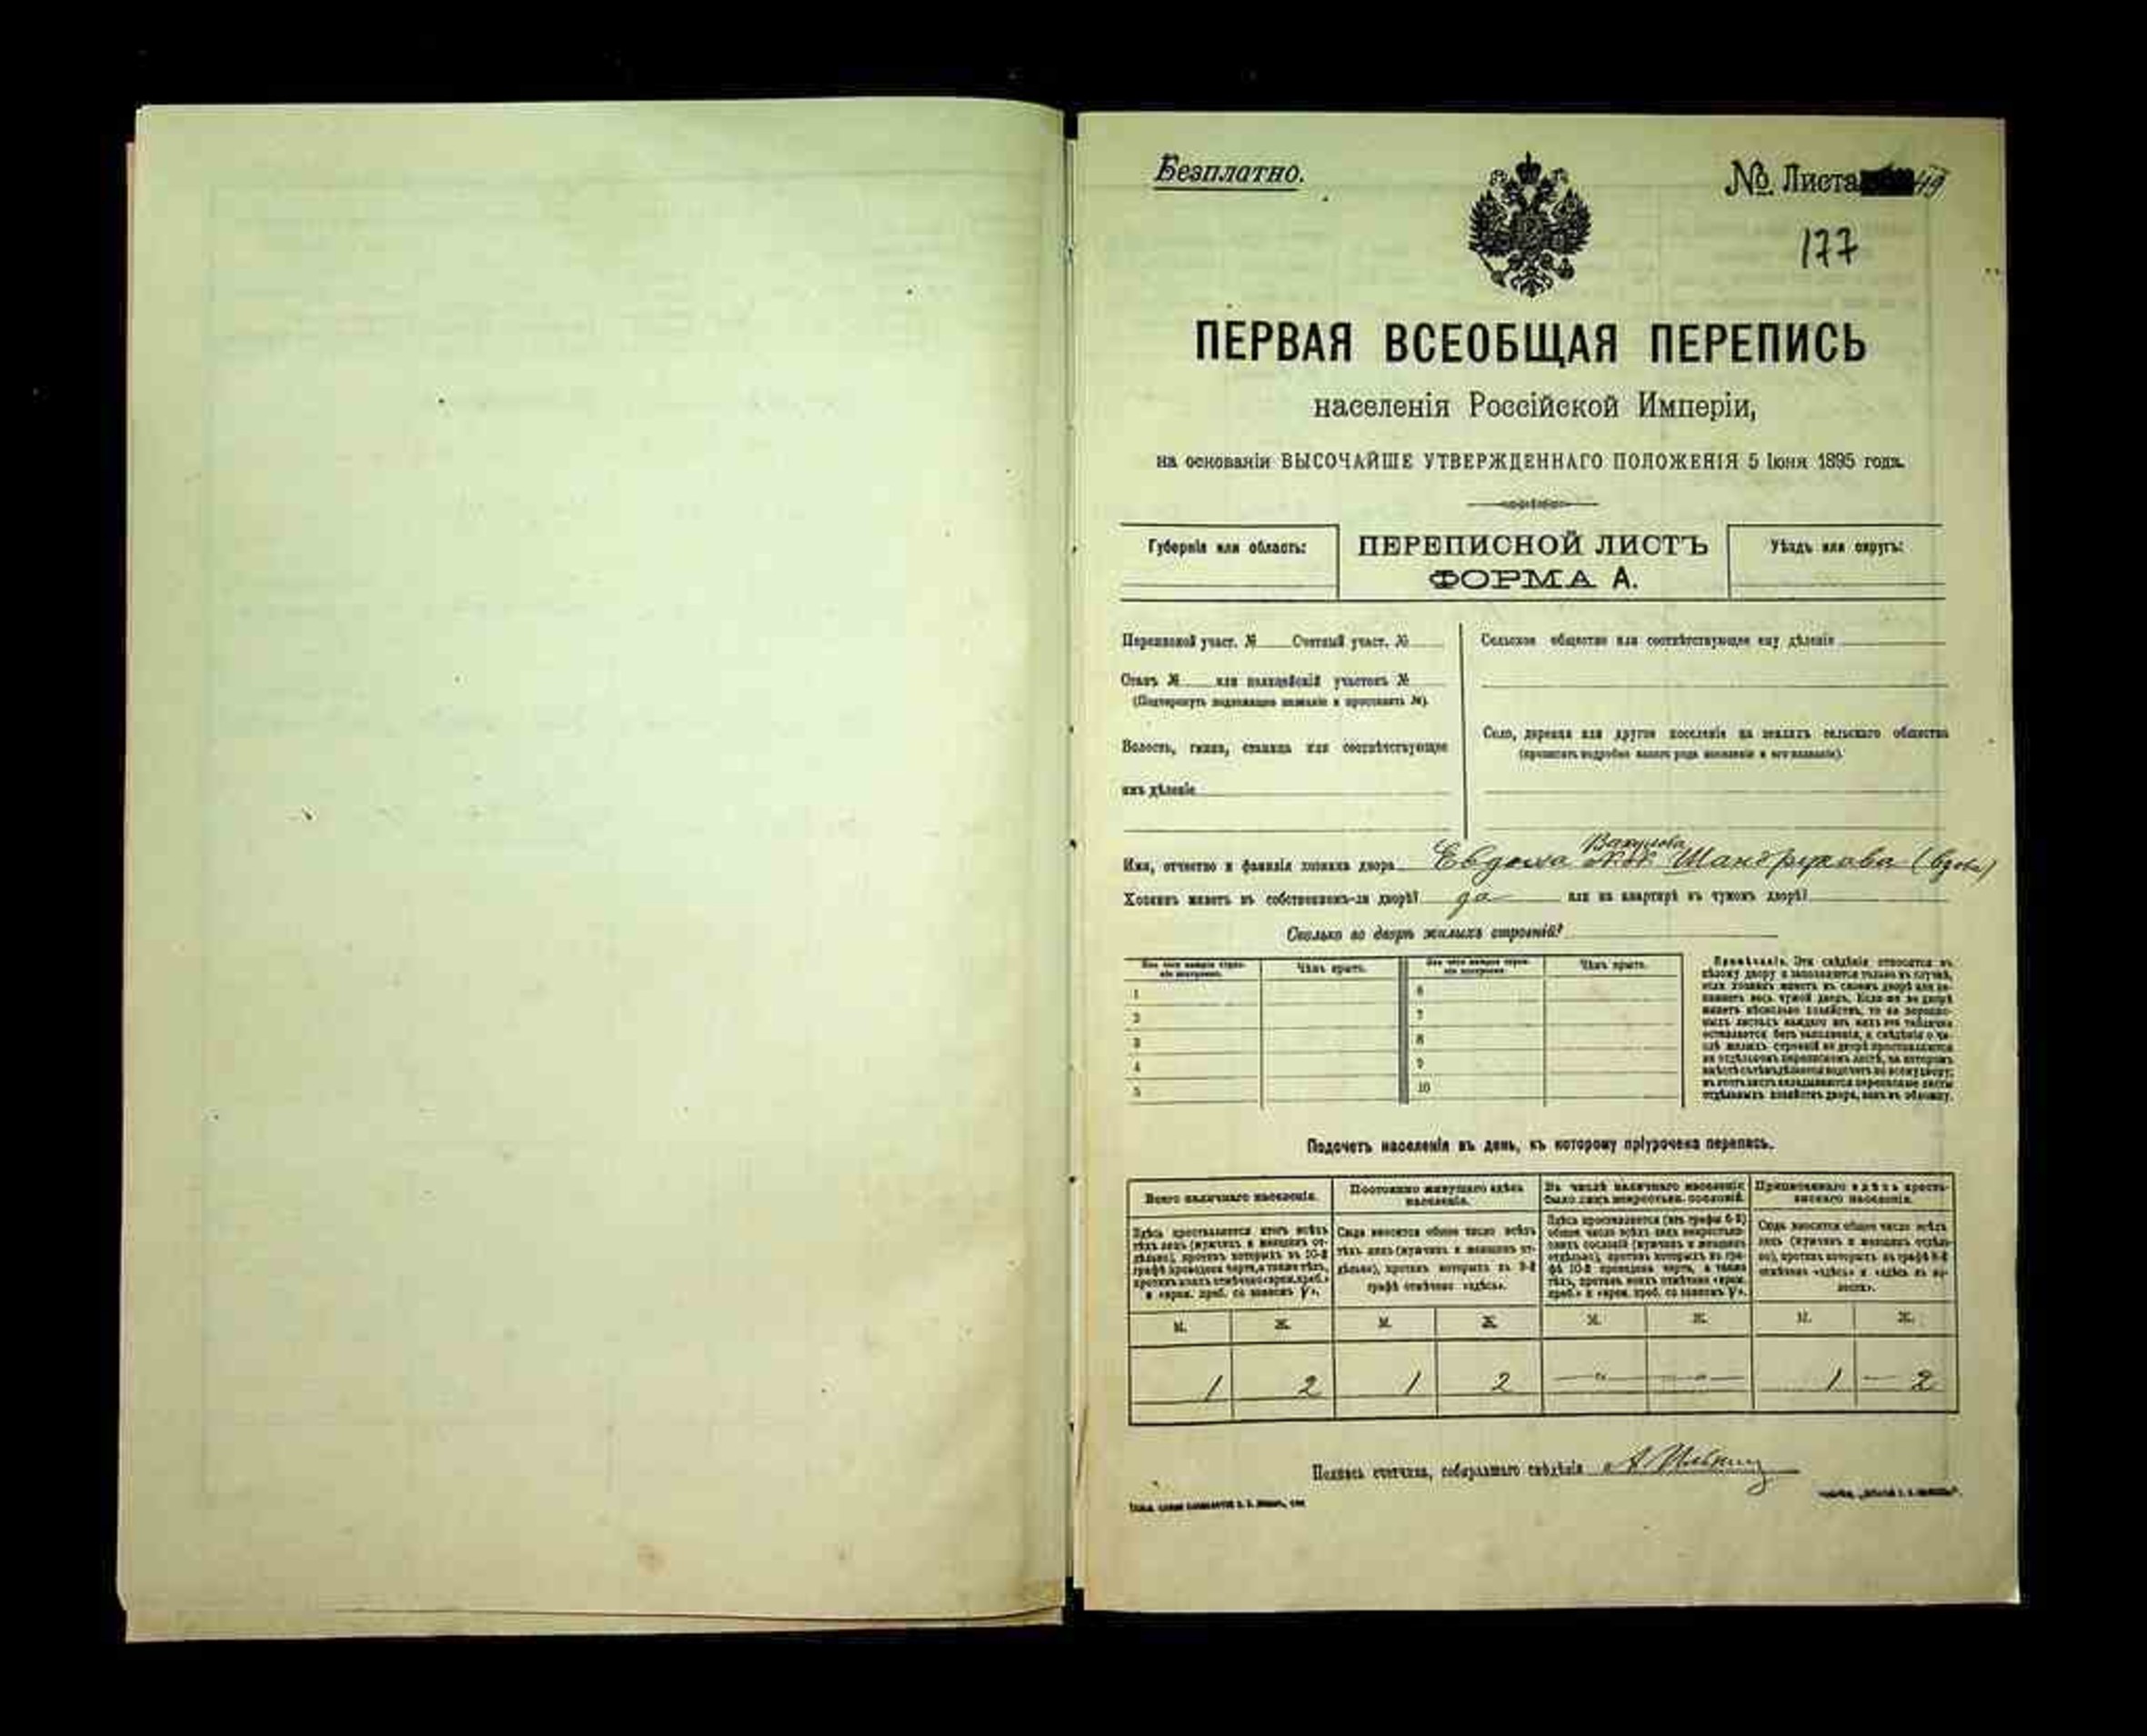 Безплатно.
№ Листа 49
177
ПЕРВАЯ ВСЕОБЩАЯ ПЕРЕПИСЬ
населенія Россійской Имперіи,
на основаніи ВЫСОЧАЙШЕ УТВЕРЖДЕННАГО ПОЛОЖЕНІЯ 5 Іюня 1895 года.
Губернія или область:
ПЕРЕПИСНОЙ ЛИСТЪ
ФОРМА А.
Уѣздъ или округъ:
Переписной участ. № Счетный участ. №
Станъ № или полицейскій участокъ №
(Подчеркнуть подлежащее названіе и проставить №).
Волость, гмина, станица или соотвѣтствующее
имъ дѣленіе
Сельское общество или соотвѣтствующее ему дѣленіе
Село, деревня или другое поселеніе на земляхъ сельскаго общества
(прописать подробно какого рода поселеніе и его названіе).
Вакулова
Имя, отчество и фамилія хозяина двора Шандрукова (вдова)
Хозяинъ живетъ въ собственномъ-ли дворѣ? да или на квартирѣ въ чужомъ дворѣ?
Сколько во дворѣ жилыхъ строеній?
Изъ чего каждое строе-
ніе построено.
Чѣмъ крыто.
Изъ чего каждое строе-
ніе построено.
Чѣмъ крыто.
1
2
3
4
5
6
7
8
9
10
Примѣчаніе. Эти свѣдѣнія относятся къ
цѣлому двору и заполняются только въ случаѣ,
если хозяинъ живетъ въ своемъ дворѣ или за-
нимаетъ весь чужой дворъ. Если-же во дворѣ
живетъ нѣсколько хозяйствъ, то на перепис-
ныхъ листахъ каждаго изъ нихъ эта табличка
оставляется безъ заполненія, а свѣдѣнія о чи-
слѣ жилыхъ строеній во дворѣ проставляются
на отдѣльномъ переписномъ листѣ, на которомъ
вмѣстѣ съ тѣмъ дѣлается подсчетъ по всему двору;
въ этотъ листъ вкладываются переписные листы
отдѣльныхъ хозяйствъ двора, какъ въ обложку.
Подсчетъ населенія въ день, къ которому пріурочена перепись.
Всего наличнаго населенія.
Постоянно живущаго здѣсь
населенія.
Въ числѣ наличнаго населенія
было лицъ некрестьян. сословій.
Приписаннаго здѣсь кресть-
янскаго населенія.
Здѣсь проставляется итогъ всѣхъ
тѣхъ лицъ (мужчинъ и женщинъ от-
дѣльно), противъ которыхъ въ 10-й
графѣ проведена черта, а также тѣхъ,
противъ коихъ отмѣчено «врем. преб.»
и «врем. преб. со знакомъ V».
Сюда вносится общее число всѣхъ
тѣхъ лицъ (мужчинъ и женщинъ от-
дѣльно), противъ которыхъ въ 9-й
графѣ отмѣчено «здѣсь».
Здѣсь проставляется (изъ графы 6-й)
общее число всѣхъ лицъ некрестьян-
скихъ сословій (мужчинъ и женщинъ
отдѣльно), противъ которыхъ въ гра-
фѣ 10-й проведена черта, а также
тѣхъ, противъ коихъ отмѣчено «врем.
преб.» и «врем. преб. со знакомъ V».
Сюда вносится общее число всѣхъ
лицъ (мужчинъ и женщинъ отдѣль-
но), противъ которыхъ въ графѣ 8-й
отмѣчено «здѣсь» и «здѣсь въ во-
лости».
М. Ж. М. Ж. М. Ж. М. Ж.
1 2 1 2 — " — — " — 1 — 2
Подпись счетчика, собиравшаго свѣдѣнія